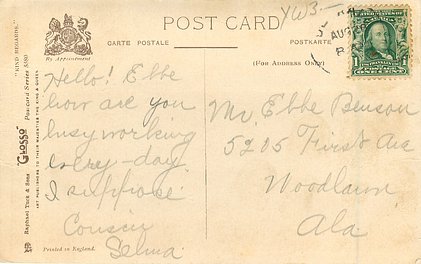 POST CARD
YW3-
CARTE POSTALE
POSTKARTE
By Appointment
(FOR ADDRESS ONLY)
"HIND MEGARDE."
Postcard Series 5580
"GLOSSO"
Raphael Tuck & Sons
ART PUBLISHERS TO THEIR MAJESTIES THE KING & QUEEN
Hello! Ebbe
how are you
busy working
every-day
I suppose
Cousin
Selma
Printed in England.
Mr. Ebbe Benson
5205 First Ave
Woodlawn
Ala.
AUG
1
ONE CENT
1